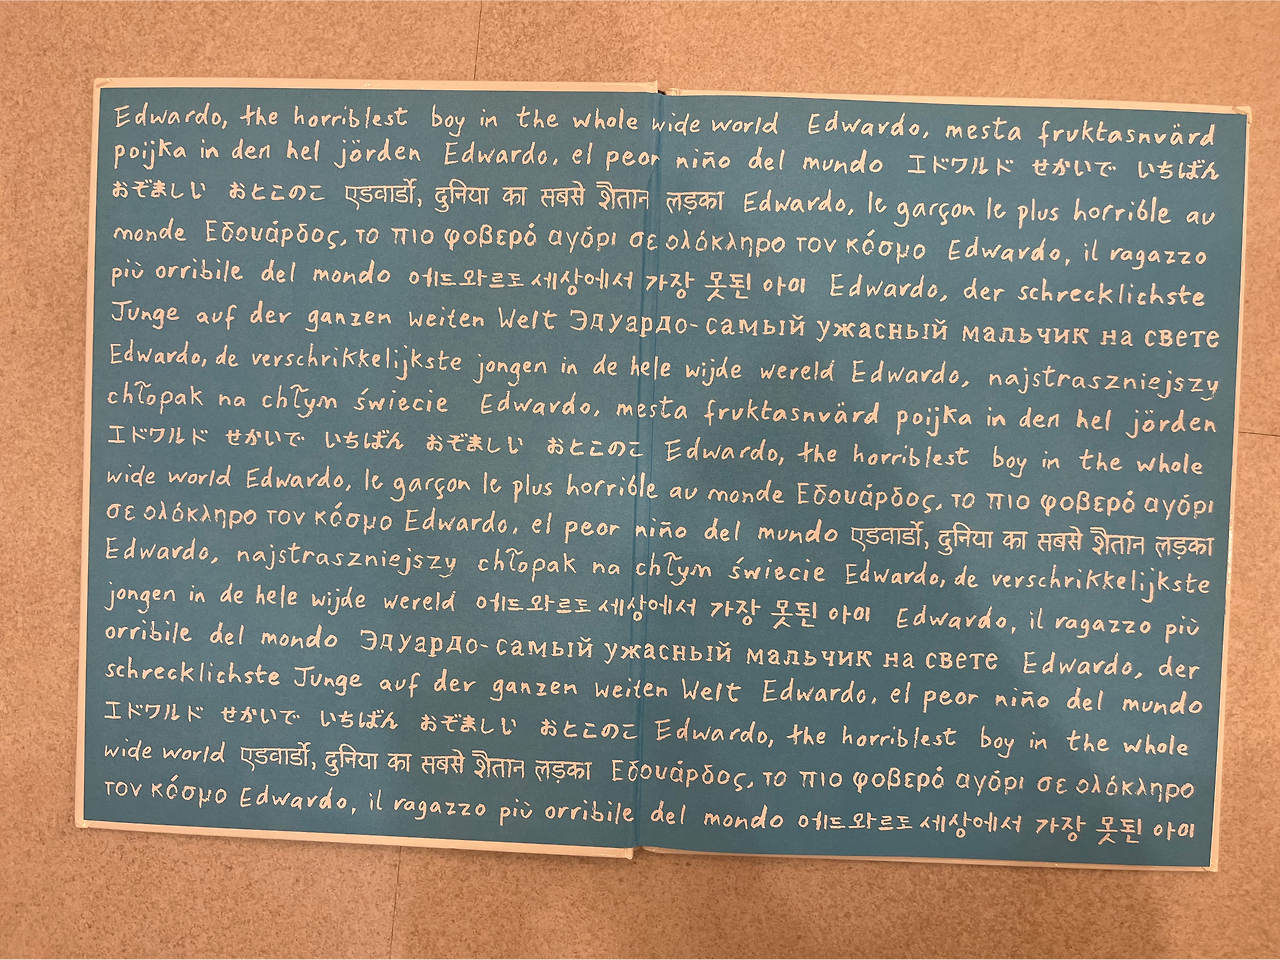 Edwardo, the horriblest boy in the whole wide world Edwardo, mesta fruktasnvärd
poijka in den hel jörden Edwardo, el peor niño del mundo エドワルド せかいで いちばん
おぞましい おとこのこ एडवार्डो, दुनिया का सबसे शैतान लड़का Edwardo, le garçon le plus horrible au
monde Εδουάρδος, το πιο φοβερό αγόρι σε ολόκληρο τον κόσμο Edwardo, il ragazzo
più orribile del mondo 에드와르도 세상에서 가장 못된 아이 Edwardo, der schrecklichste
Junge auf der ganzen weiten Welt Эдуардо-самый ужасный мальчик на свете
Edwardo, de verschrikkelijkste jongen in de hele wijde wereld Edwardo, najstraszniejszy
chłopak na chłym świecie Edwardo, mesta fruktasnvärd poijka in den hel jörden
エドワルド せかいで いちばん おぞましい おとこのこ Edwardo, the horriblest boy in the whole
wide world Edwardo, le garçon le plus horrible au monde Εδουάρδος, το πιο φοβερό αγόρι
σε ολόκληρο τον κόσμο Edwardo, el peor niño del mundo एडवार्डो, दुनिया का सबसे शैतान लड़का
Edwardo, najstraszniejszy chłopak na chłym świecie Edwardo, de verschrikkelijkste
jongen in de hele wijde wereld 에드와르도 세상에서 가장 못된 아이 Edwardo, il ragazzo più
orribile del mondo Эдуардо-самый ужасный мальчик на свете Edwardo, der
schrecklichste Junge auf der ganzen weiten Welt Edwardo, el peor niño del mundo
エドワルド せかいで いちばん おぞましい おとこのこ Edwardo, the horriblest boy in the whole
wide world एडवार्डो, दुनिया का सबसे शैतान लड़का Εδουάρδος, το πιο φοβερό αγόρι σε ολόκληρο
τον κόσμο Edwardo, il ragazzo più orribile del mondo 에드와르도 세상에서 가장 못된 아이